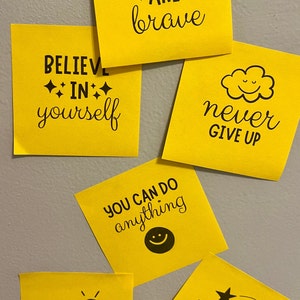 brave
BELIEVE
IN
yourself
never
GIVE UP
YOU CAN DO
anything